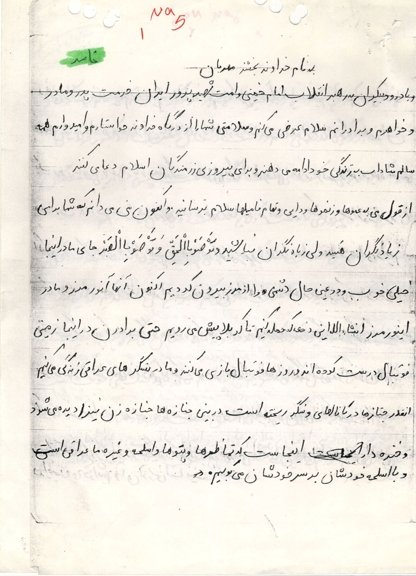 ۱ ۷۹ ۵
خاصه
به نام خداوند بخشنده مهربان
و با درود بیکران به رهبر انقلاب امام خمینی و امت شهید پرور ایران خدمت پدر و مادر
و خواهرم و برادرانم سلام عرض می‌کنم و سلامتی شما را از درگاه خداوند خواستارم و امیدوارم همه
سالم شاداب به زندگی خود ادامه می دهند و برای پیروزی رزمندگان اسلام دعا می کنند
از قول من به عموها و زنعموها و دایی و تمام فامیلها سلام برسانید تو کنون من می دانم که شما برای
زیاد نگران هستید ولی زیاد نگران نباشید وتواصوا بالحق و تواصوا بالصبر جای ما در اینجا
خیلی خوب و در عین حال دشمن را از مرز بیرون کردیم اکنون آنها آنور مرز و ما در
اینور مرز انشاءالله این دفعه که حمله کنیم تا کربلا پیش می رویم حتی برادران در اینجا زمین
فوتبال درست کرده اند و روزها فوتبال بازی می‌کنند و ما در سنگر های عراقی زندگی می‌کنیم
انقدر جنازه‌ها در کانالهای و سنگر ریخته است در بین جنازه ها جنازه زن نیز دیده می‌شود
و خنده دار اینجاست که تمام ظرفها و پتوها و اسلحه و غیره ما عراقی است
و با اسلحه خودشان بر سر خودشان می‌کوبیم